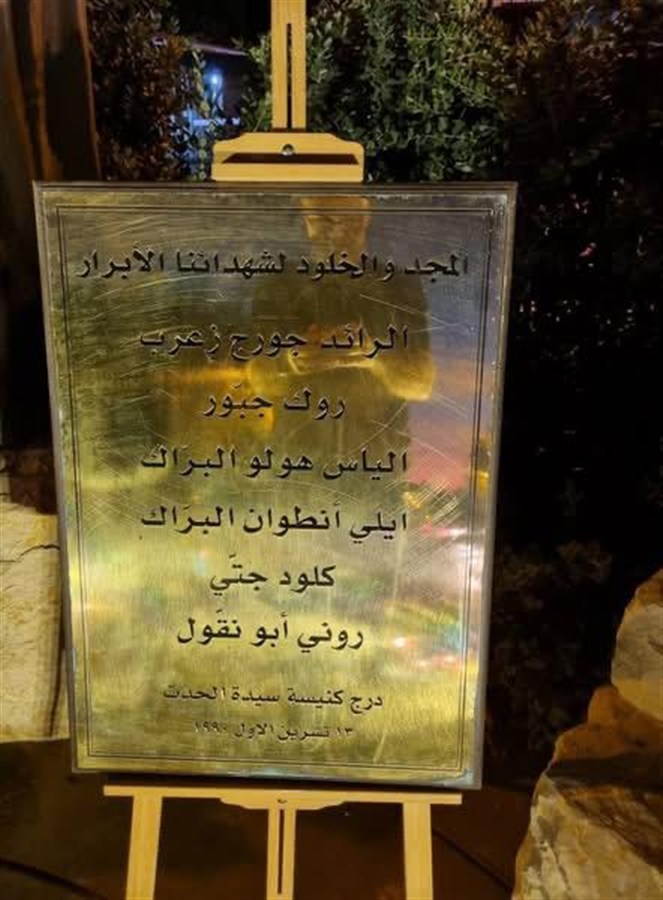 المجد والخلود لشهدائنا الأبرار
الرائد جورج زعرب
روك جبّور
الياس هولو البرَاك
ايلي أنطوان البرَاك
كلود جتّي
روني أبو نقّول
درج كنيسة سيدة الحدث
١٣ تشرين الاول ١٩٩٠